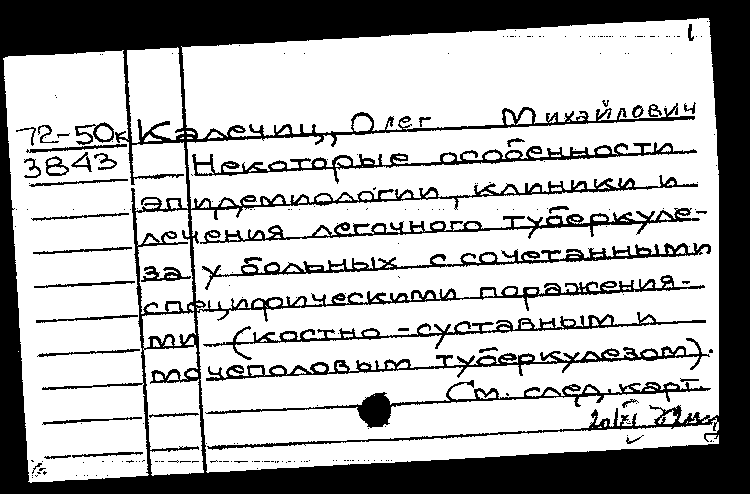 1
72-50к Калечиц, Олег Михайлович
3843 Некоторые особенности
эпидемиологии, клиники и
лечения легочного туберкуле-
за у больных с сочетанными
специфическими поражения-
ми (костно-суставным и
мочеполовым туберкулезом).
См. след. карт.
20/XI 72